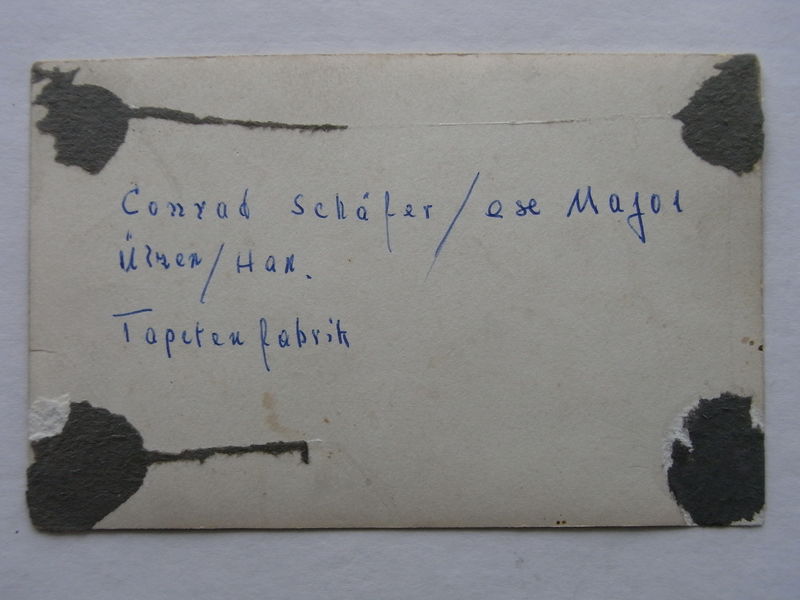 Conrad Schäfer / ese Major
Ülzen / Han.
Tapetenfabrik